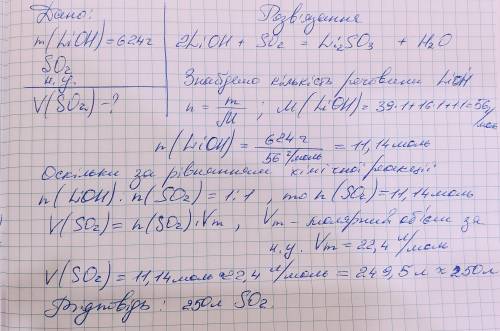 Дано:
m(LiOH)=624г
SO₂
н.у.
V(SO₂)-?
Розв'язання
2LiOH + SO₂ = Li₂SO₃ + H₂O
Знайдемо кількість речовини LiOH
n = m/M ; M(LiOH)=39·1+16·1+1·1=56г/моль
n(LiOH) = 624г / 56 г/моль = 11,14моль
Оскільки за рівнянням хімічної реакції
n(LiOH) : n(SO₂) = 1:1 , то n(SO₂)=11,14моль
V(SO₂) = n(SO₂)·Vm , Vm - молярний об'єм за
н.у. Vm = 22,4 л/моль
V(SO₂) = 11,14моль × 22,4 л/моль = 249,5л ≈ 250л
Відповідь : 250л SO₂.